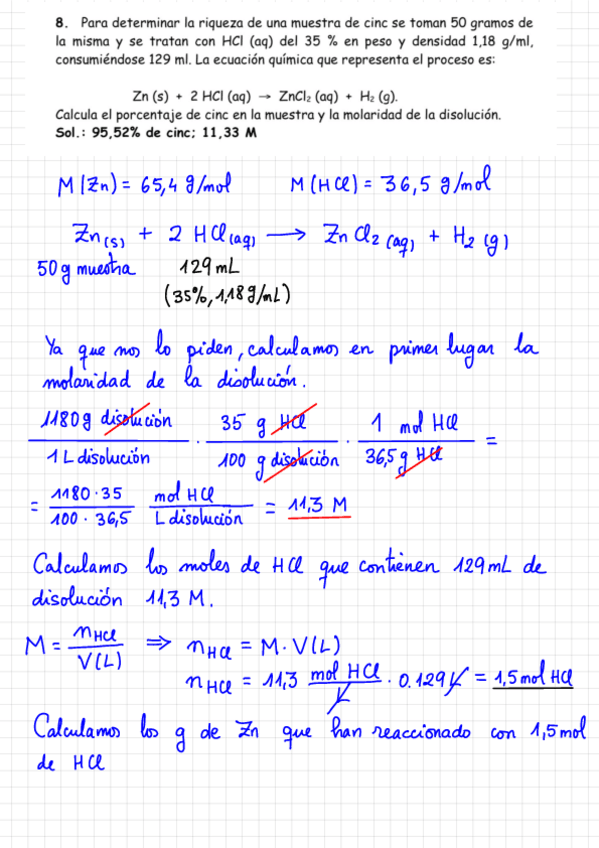 8. Para determinar la riqueza de una muestra de cinc se toman 50 gramos de
la misma y se tratan con HCl (aq) del 35 % en peso y densidad 1,18 g/ml,
consumiéndose 129 ml. La ecuación química que representa el proceso es:
Zn (s) + 2 HCl (aq) → ZnCl₂ (aq) + H₂ (g).
Calcula el porcentaje de cinc en la muestra y la molaridad de la disolución.
Sol.: 95,52% de cinc; 11,33 M
M(Zn) = 65,4 g/mol M(HCl) = 36,5 g/mol
Zn(s) + 2 HCl(aq) → ZnCl₂(aq) + H₂(g)
50g muestra 129 mL
(35%, 1,18g/mL)
Ya que nos lo piden, calculamos en primer lugar la
molaridad de la disolución.
1180g disolución / 1 L disolución · 35 g HCl / 100 g disolución · 1 mol HCl / 36,5 g HCl =
= 1180·35 / 100·36,5 mol HCl / L disolución = 11,3 M
Calculamos los moles de HCl que contienen 129mL de
disolución 11,3 M.
M = nHCl / V(L) ⇒ nHCl = M·V(L)
nHCl = 11,3 mol HCl / L · 0.129 L = 1,5 mol HCl
Calculamos los g de Zn que han reaccionado con 1,5 mol
de HCl